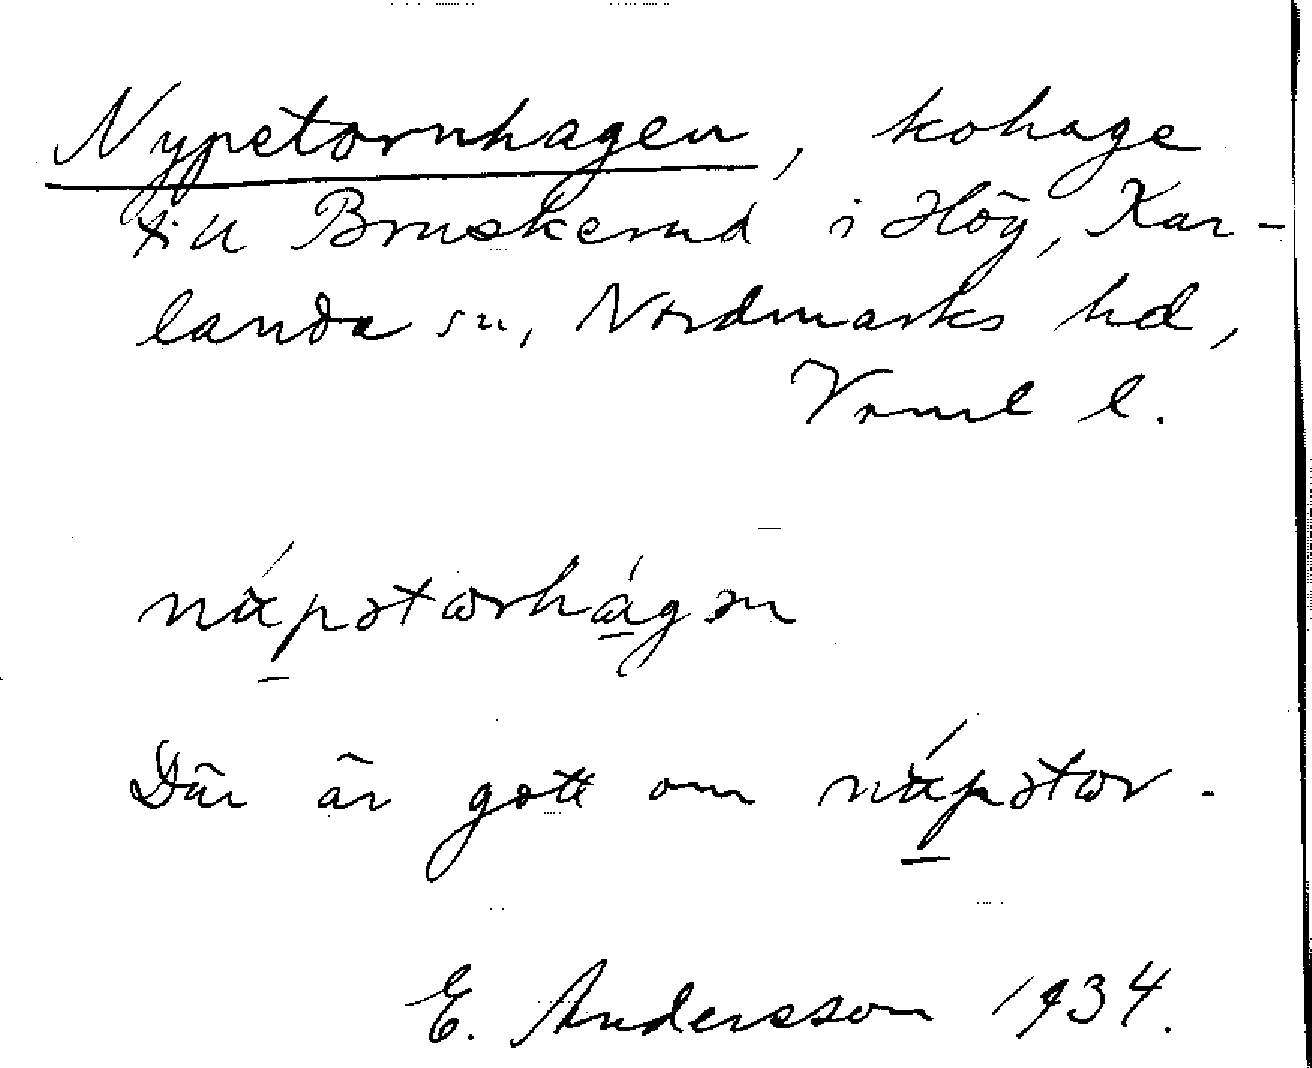 Nypetornhagen, kohage
till Bruskerud i Hög, Kar-
landa sn, Nordmarks hd,
Vrml l.
Där är gott om
E. Andersson 1934.